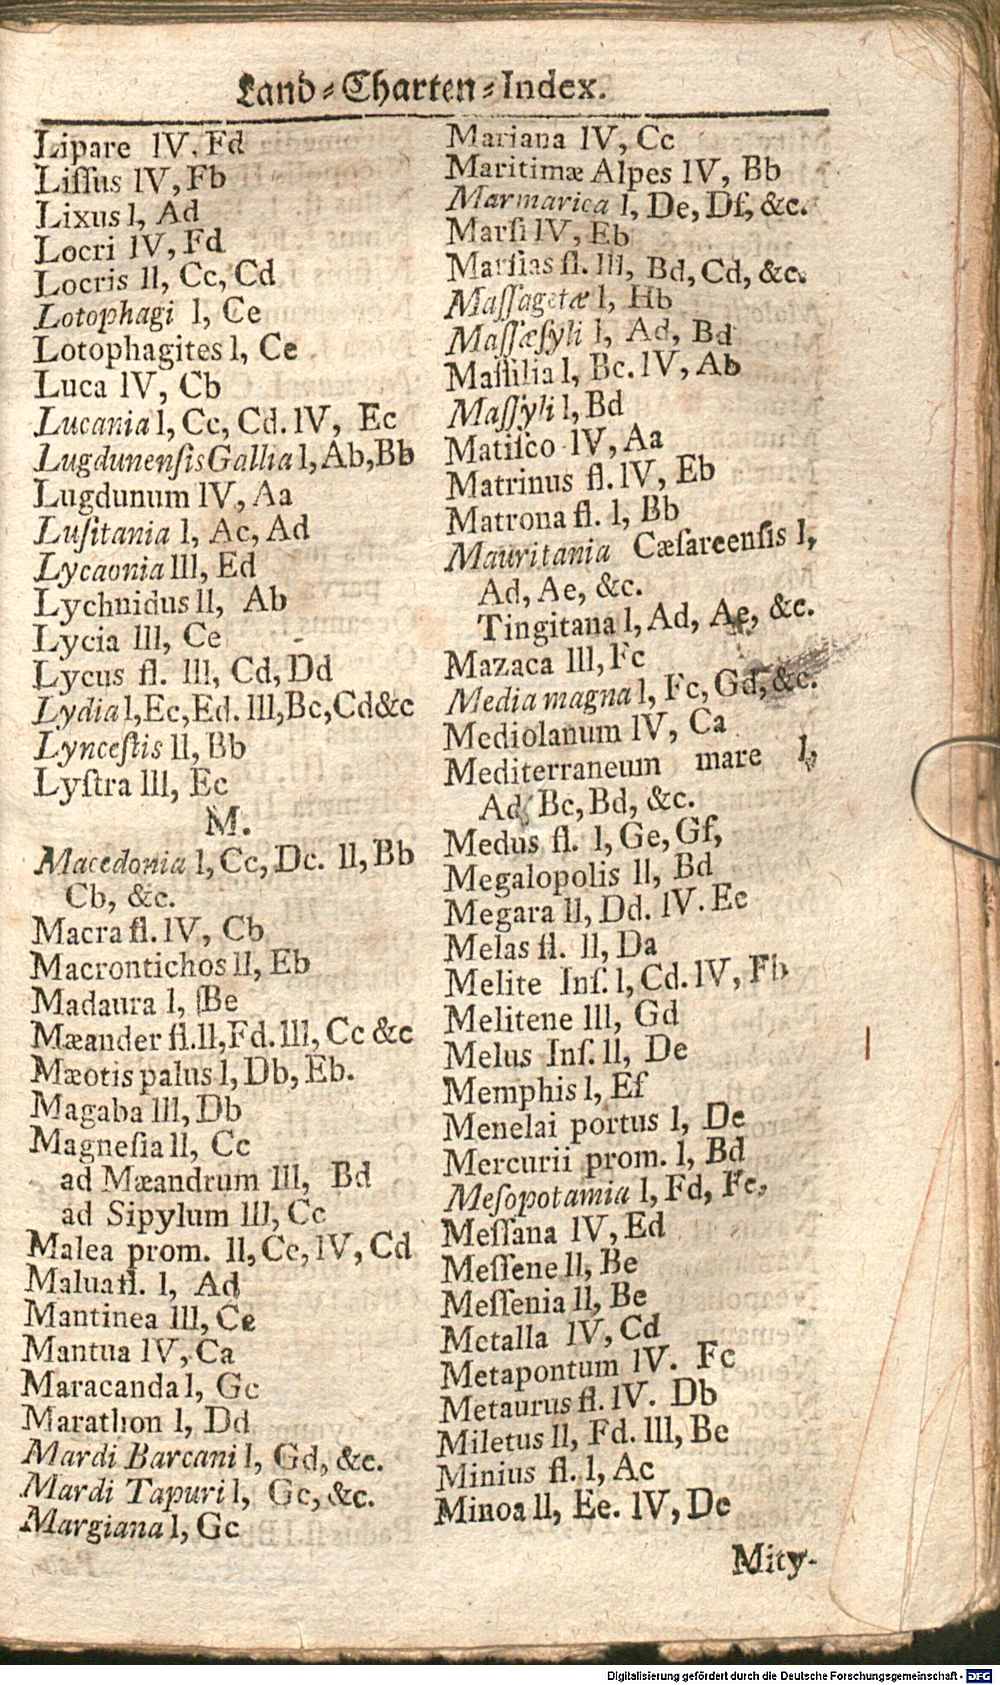 Land-Charten-Index.
Lipare IV. Fd
Liſſus IV, Fb
Lixus I, Ad
Locri IV, Fd
Locris II, Cc, Cd
Lotophagi I, Ce
Lotophagites I, Ce
Luca IV, Cb
Lucania I, Cc, Cd. IV, Ec
Lugdunenſis Gallia I, Ab, Bb
Lugdunum IV, Aa
Luſitania I, Ac, Ad
Lycaonia III, Ed
Lychnidus II, Ab
Lycia III, Ce
Lycus fl. III, Cd, Dd
Lydia I, Ec, Ed. III, Bc, Cd &c
Lynceſtis II, Bb
Lyſtra III, Ec
M.
Macedonia I, Cc, Dc. II, Bb
Cb, &c.
Macra fl. IV, Cb
Macrontichos II, Eb
Madaura I, Be
Mæander fl. II, Fd. III, Cc &c
Mæotis palus I, Db, Eb.
Magaba III, Db
Magneſia II, Cc
ad Mæandrum III, Bd
ad Sipylum III, Cc
Malea prom. II, Ce, IV, Cd
Malua fl. I, Ad
Mantinea III, Ce
Mantua IV, Ca
Maracanda I, Gc
Marathon I, Dd
Mardi Barcani I, Gd, &c.
Mardi Tapuri I, Gc, &c.
Margiana I, Gc
Mariana IV, Cc
Maritimæ Alpes IV, Bb
Marmarica I, De, Df, &c.
Marſi IV, Eb
Marſias fl. III, Bd, Cd, &c.
Maſſagetæ I, Hb
Maſſæſyli I, Ad, Bd
Maſſilia I, Bc. IV, Ab
Maſſyli I, Bd
Matiſco IV, Aa
Matrinus fl. IV, Eb
Matrona fl. I, Bb
Mauritania Cæſareenſis I,
Ad, Ae, &c.
Tingitana I, Ad, Ae, &c.
Mazaca III, Fc
Media magna I, Fc, Gd, &c.
Mediolanum IV, Ca
Mediterraneum mare I,
Ad, Bc, Bd, &c.
Medus fl. I, Ge, Gf,
Megalopolis II, Bd
Megara II, Dd. IV. Ee
Melas fl. II, Da
Melite Inſ. I, Cd. IV, Fb
Melitene III, Gd
Melus Inſ. II, De
Memphis I, Ef
Menelai portus I, De
Mercurii prom. I, Bd
Meſopotamia I, Fd, Fe,
Meſſana IV, Ed
Meſſene II, Be
Meſſenia II, Be
Metalla IV, Cd
Metapontum IV. Fc
Metaurus fl. IV. Db
Miletus II, Fd. III, Be
Minius fl. I, Ac
Minoa II, Ee. IV, De
Mity-
Digitalisierung gefördert durch die Deutsche Forschungsgemeinschaft - DFG